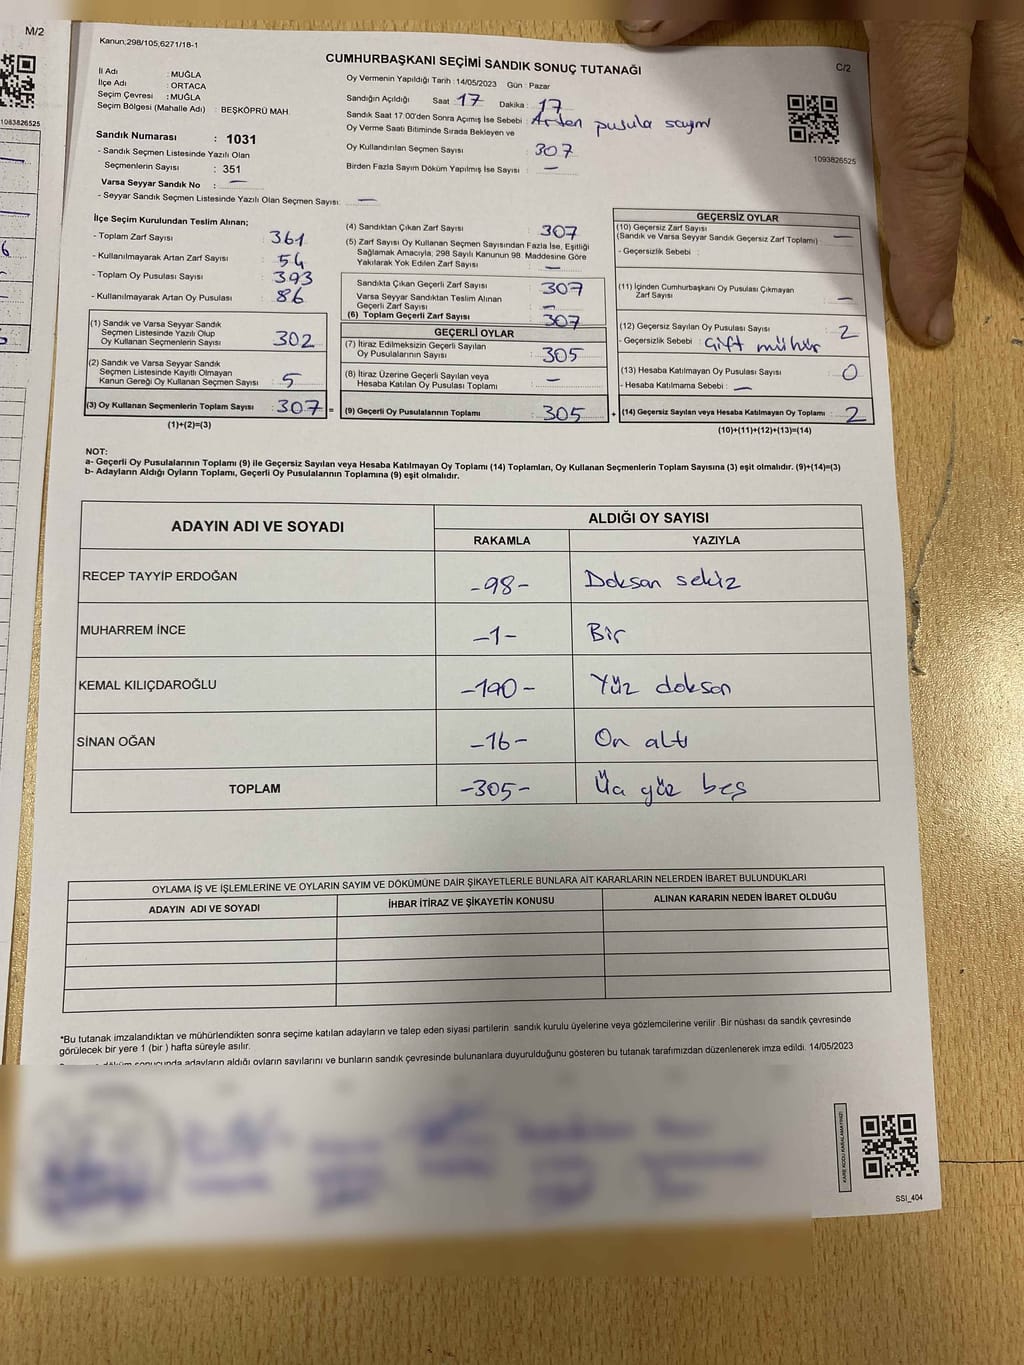 M/2
1093826525
Kanun,298/105,6271/18-1
CUMHURBAŞKANI SEÇİMİ SANDIK SONUÇ TUTANAĞI
C/2
İl Adı : MUĞLA
İlçe Adı : ORTACA
Seçim Çevresi : MUĞLA
Seçim Bölgesi (Mahalle Adı) : BEŞKÖPRÜ MAH.
Sandık Numarası : 1031
- Sandık Seçmen Listesinde Yazılı Olan
Seçmenlerin Sayısı : 351
Varsa Seyyar Sandık No : —
- Seyyar Sandık Seçmen Listesinde Yazılı Olan Seçmen Sayısı: —
Oy Vermenin Yapıldığı Tarih : 14/05/2023 Gün : Pazar
Sandığın Açıldığı Saat 17 Dakika : 17
Sandık Saat 17:00'den Sonra Açımış İse Sebebi : Artan pusula sayımı
Oy Verme Saati Bitiminde Sırada Bekleyen ve
Oy Kullandırılan Seçmen Sayısı 307
Birden Fazla Sayım Döküm Yapılmış İse Sayısı : —
1093826525
İlçe Seçim Kurulundan Teslim Alınan;
- Toplam Zarf Sayısı : 361
- Kullanılmayarak Artan Zarf Sayısı : 54
- Toplam Oy Pusulası Sayısı : 393
- Kullanılmayarak Artan Oy Pusulası : 86
(1) Sandık ve Varsa Seyyar Sandık
Seçmen Listesinde Yazılı Olup
Oy Kullanan Seçmenlerin Sayısı : 302
(2) Sandık ve Varsa Seyyar Sandık
Seçmen Listesinde Kayıtlı Olmayan
Kanun Gereği Oy Kullanan Seçmen Sayısı : 5
(3) Oy Kullanan Seçmenlerin Toplam Sayısı : 307 =
(1)+(2)=(3)
(4) Sandıktan Çıkan Zarf Sayısı : 307
(5) Zarf Sayısı Oy Kullanan Seçmen Sayısından Fazla İse, Eşitliği
Sağlamak Amacıyla; 298 Sayılı Kanunun 98. Maddesine Göre
Yakılarak Yok Edilen Zarf Sayısı : —
Sandıkta Çıkan Geçerli Zarf Sayısı : 307
Varsa Seyyar Sandıktan Teslim Alınan
Geçerli Zarf Sayısı : —
(6) Toplam Geçerli Zarf Sayısı : 307
GEÇERLİ OYLAR
(7) İtiraz Edilmeksizin Geçerli Sayılan
Oy Pusulalarının Sayısı : 305
(8) İtiraz Üzerine Geçerli Sayılan veya
Hesaba Katılan Oy Pusulası Toplamı : —
(9) Geçerli Oy Pusulalarının Toplamı : 305 +
GEÇERSİZ OYLAR
(10) Geçersiz Zarf Sayısı
(Sandık ve Varsa Seyyar Sandık Geçersiz Zarf Toplamı) : —
- Geçersizlik Sebebi :
(11) İçinden Cumhurbaşkanı Oy Pusulası Çıkmayan
Zarf Sayısı : —
(12) Geçersiz Sayılan Oy Pusulası Sayısı : 2
- Geçersizlik Sebebi : Çift mühür
(13) Hesaba Katılmayan Oy Pusulası Sayısı : 0
- Hesaba Katılmama Sebebi : —
(14) Geçersiz Sayılan veya Hesaba Katılmayan Oy Toplamı : 2
(10)+(11)+(12)+(13)=(14)
NOT:
a- Geçerli Oy Pusulalarının Toplamı (9) ile Geçersiz Sayılan veya Hesaba Katılmayan Oy Toplamı (14) Toplamları, Oy Kullanan Seçmenlerin Toplam Sayısına (3) eşit olmalıdır. (9)+(14)=(3)
b- Adayların Aldığı Oyların Toplamı, Geçerli Oy Pusulalarının Toplamına (9) eşit olmalıdır.
ADAYIN ADI VE SOYADI
ALDIĞI OY SAYISI
RAKAMLA YAZIYLA
RECEP TAYYİP ERDOĞAN -98- Doksan sekiz
MUHARREM İNCE -1- Bir
KEMAL KILIÇDAROĞLU -190- Yüz doksan
SİNAN OĞAN -16- On altı
TOPLAM -305- Üç yüz beş
OYLAMA İŞ VE İŞLEMLERİNE VE OYLARIN SAYIM VE DÖKÜMÜNE DAİR ŞİKAYETLERLE BUNLARA AİT KARARLARIN NELERDEN İBARET BULUNDUKLARI
ADAYIN ADI VE SOYADI İHBAR İTİRAZ VE ŞİKAYETİN KONUSU ALINAN KARARIN NEDEN İBARET OLDUĞU
*Bu tutanak imzalandıktan ve mühürlendikten sonra seçime katılan adayların ve talep eden siyasi partilerin sandık kurulu üyelerine veya gözlemcilerine verilir .Bir nüshası da sandık çevresinde
görülecek bir yere 1 (bir ) hafta süreyle asılır.
döküm sonucunda adayların aldığı oyların sayılarını ve bunların sandık çevresinde bulunanlara duyurulduğunu gösteren bu tutanak tarafımızdan düzenlenerek imza edildi. 14/05/2023
KARE KODU KARALAMAYINIZ!
SSI_404